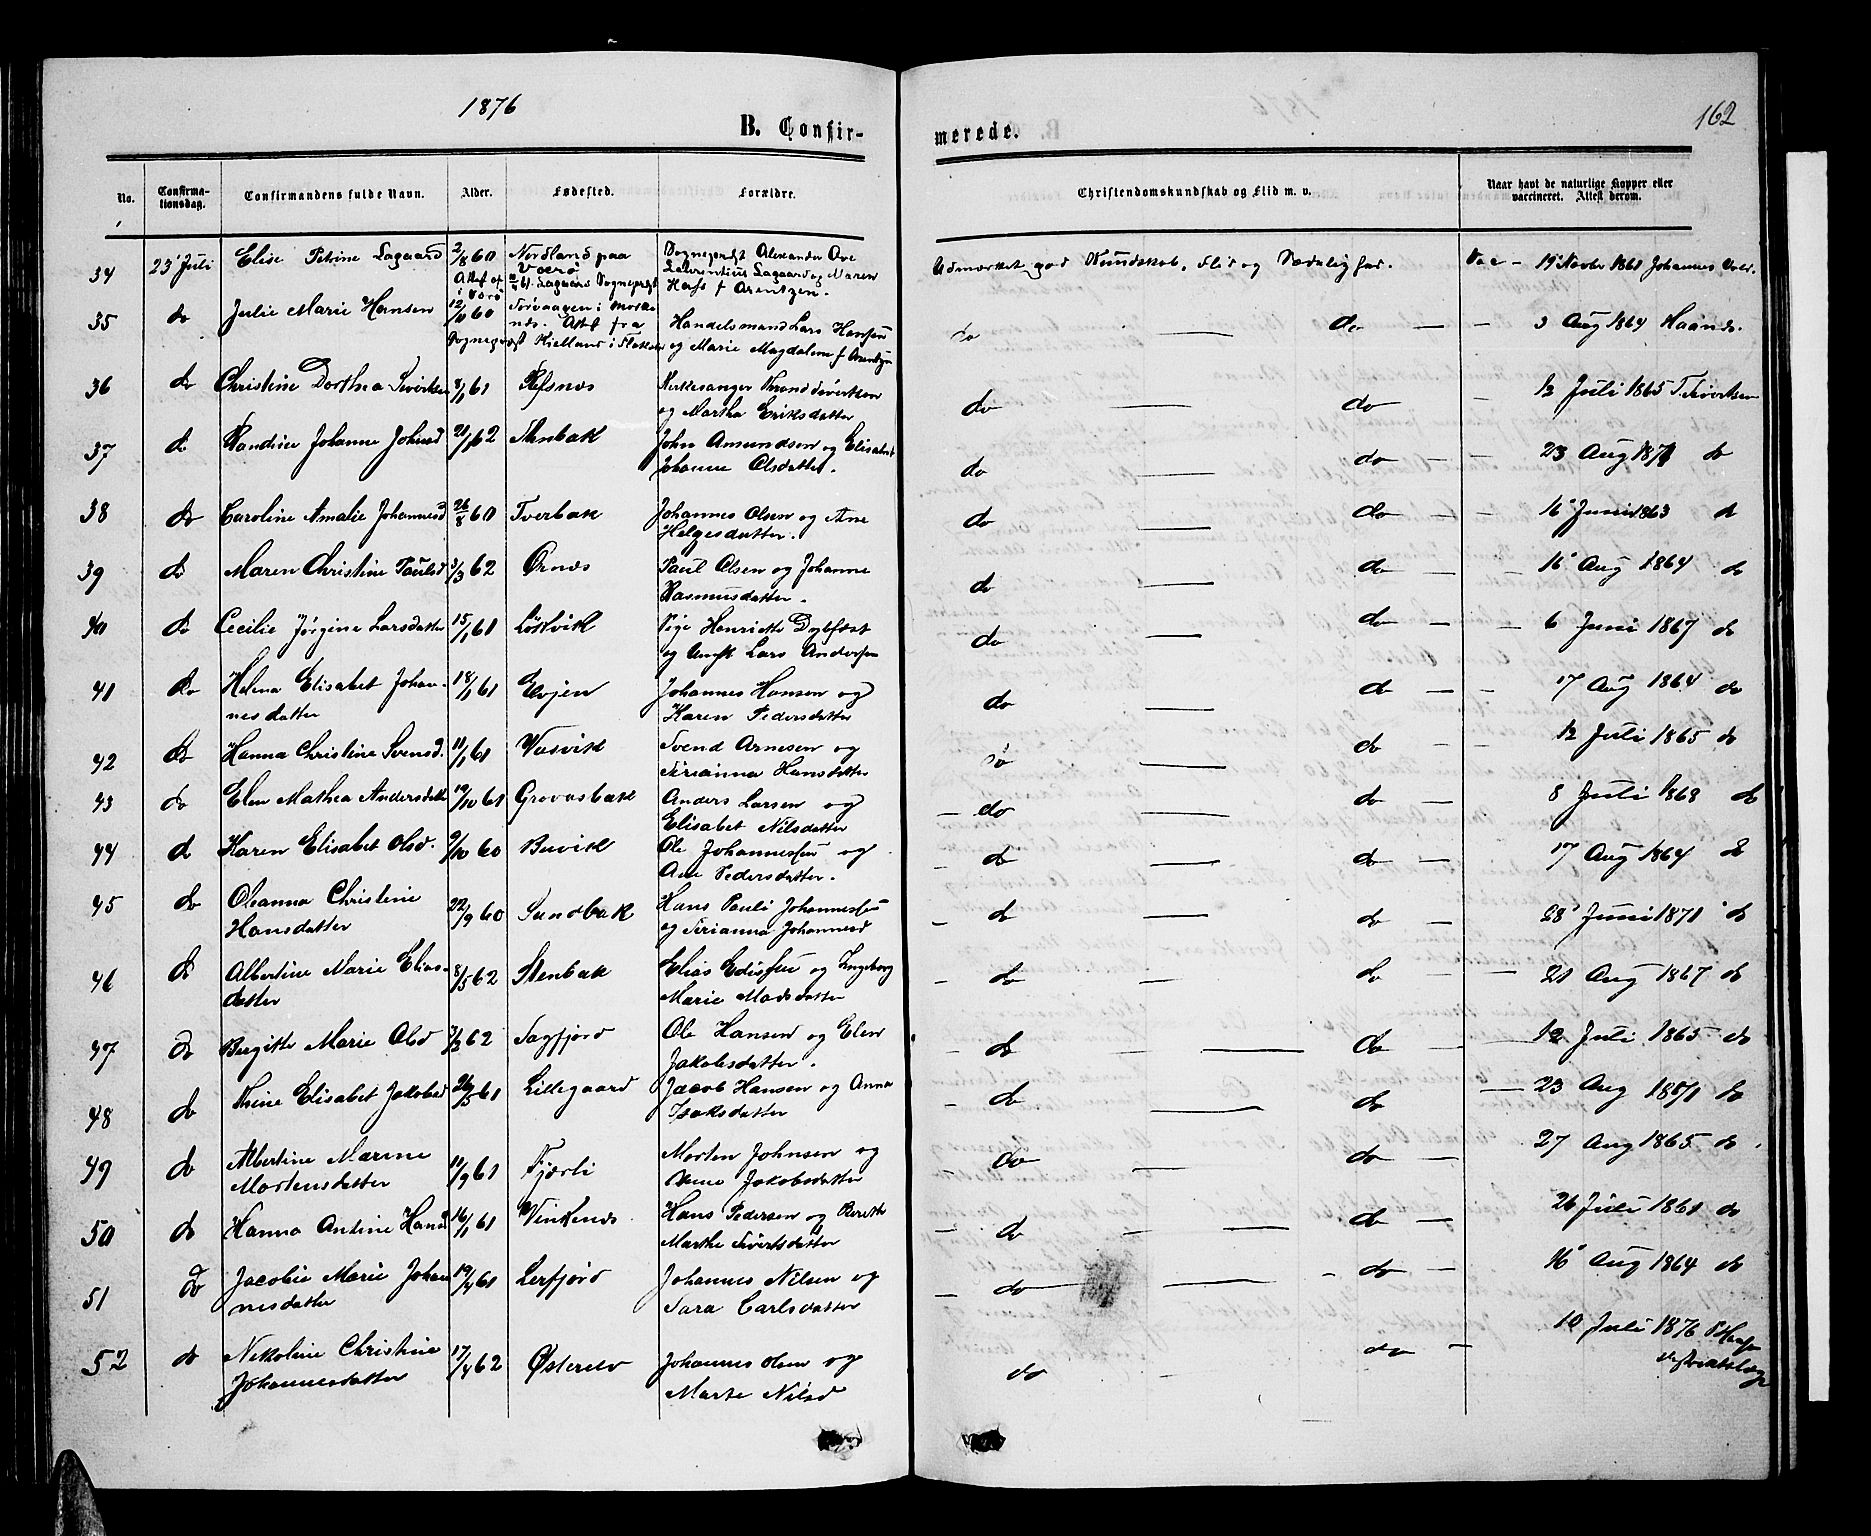 1876
B. Confir-
merede.
162
No.
Confirma-
tionsdag.
Confirmandens fulde Navn.
Alder.
Fødested.
Forældre.
Christendomskundskab og Flid m. v.
Naar havt de naturlige Kopper eller
vaccineret. Attest derom.
34 23' Juli Elise Petrine Lagaard 2/8 60 Nordland paa Værø Sogneprest Alexander Ove
Laurentius Lagaard og Maren
Arentzen. Udmærket god Kundskab, Flid og Sædelighed. Vac - 19 Novbr 1861 Johannes
35 do Julie Marie Hansen 12/10 60 Sørvaagen i Moske
næs. Attest fra Handelsmand Lars Hansen
Sogneprest Hielland i og Marie Magdalene f Arentzen do do 3 Aug 1864
36 do Christine Dorthea Sivertsen 8/1 61 Refsnes Kirkesanger Sivertsen
og Martha Eriksdatter do do 12 Juli 1865 Sivertsen
37 do Randine Johanne Johnsd 21/1 62 Stenbak John Amundsen og Elisabet
Johanne Olsdatter. do do 23 Aug 1871 do
38 do Caroline Amalie Johannesd 26/8 60 Tverbak Johannes Olsen og Ane
Helgesdatter. do do 16' Juni 1863 do
39 do Maren Christine Paulsd 3/3 62 Ørnes Paul Olsen og Johanne
Rasmusdatter. do do 16' Aug 1864 do
40 do Cecilie Jørgine Larsdatter 15/1 61 Løkvik Pige Henriette
og Lars Andersen do do 6 Juni 1867 do
41 do Helena Elisabet Johan- 18/1 61 Evjen Johannes Hansen og
nesdatter Karen Pedersdatter do do 17 Aug 1864 do
42 do Hanna Christine Svensd. 11/1 61 Vasvik Svend Arnesen og
Sirianna Hansdatter do do 12 Juli 1865 do
43 do Elen Mathea Andersdatter 19/10 61 Grovasbak Anders Larsen og
Elisabet Nilsdatter do do 8 Juli 1868 do
44 do Karen Elisabet Olsd. 9/10 60 Buvik Ole Johannesen og
Ane Pedersdatter. do do 17 Aug 1864 do
45 do Oleanna Christine 22/9 60 Sundbak Hans Pauli Johannesen
Hansdatter og Sirianna Johannesd do do 28' Juni 1871 do
46 do Albertine Marie Elias- 8/5 62 Stenbak Elias og Ingeborg
datter Marie Madsdatter do do 21 Aug 1867 do
47 do Bergitte Marie Olsd 7/3 62 Sagfjord Ole Hansen og Elen
Jakobsdatter. do do 12 Juli 1865 do
48 do Thine Elisabet Jakobsd 26/5 61 Lillegaard Jacob Hansen og Anna
Isaksdatter do do 23 Aug 1871 do
49 do Albertine Marine 11/9 61 Fjærli Morten Johnsen og
Mortensdatter Anne Jakobsdatter do do 27 Aug 1865 do
50 do Hanna Antine Hansd 16/1 61 Vinkenes Hans Pedersen og Berethe
Marthe Sivertsdatter do do 26 Juli 1861 do
51 do Jacobie Marie Johan 19/4 61 Leifjord Johannes Nilsen og
nesdatter Sara Carlsdatter do do 16' Aug 1864 do
52 do Nikoline Christine 17/4 62 Østerelv Johannes Olsen og
Johannesdatter Marte Nilsd do do 10 Juli 1876